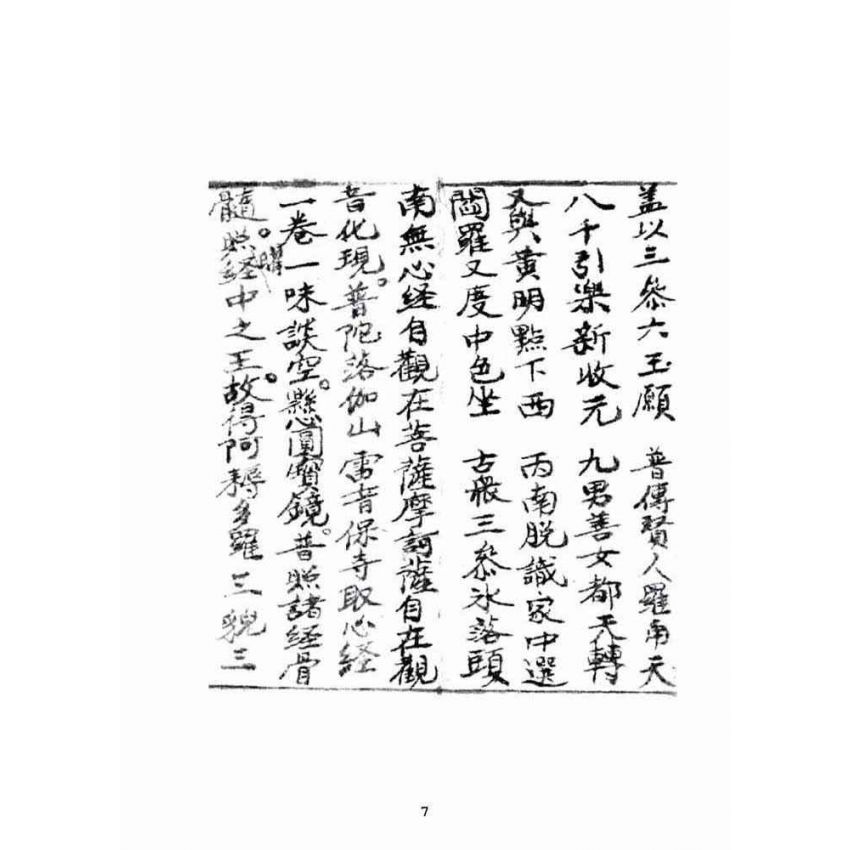 盖以三叅六玉願 普傳賢人羅南天
八千引樂新收元 九男善女都天轉
又與黄明點下西 丙南脱識家中選
閻羅又度中色坐 古眼三叅氷落頭
南無心経自觀在菩薩摩訶薩自在觀
音化現。普陀落伽山雷音保寺取心経
一卷一味談空。懸圓寳鏡。普照諸経骨
髓。照耀経中之王。故得阿耨多羅三貌三
7